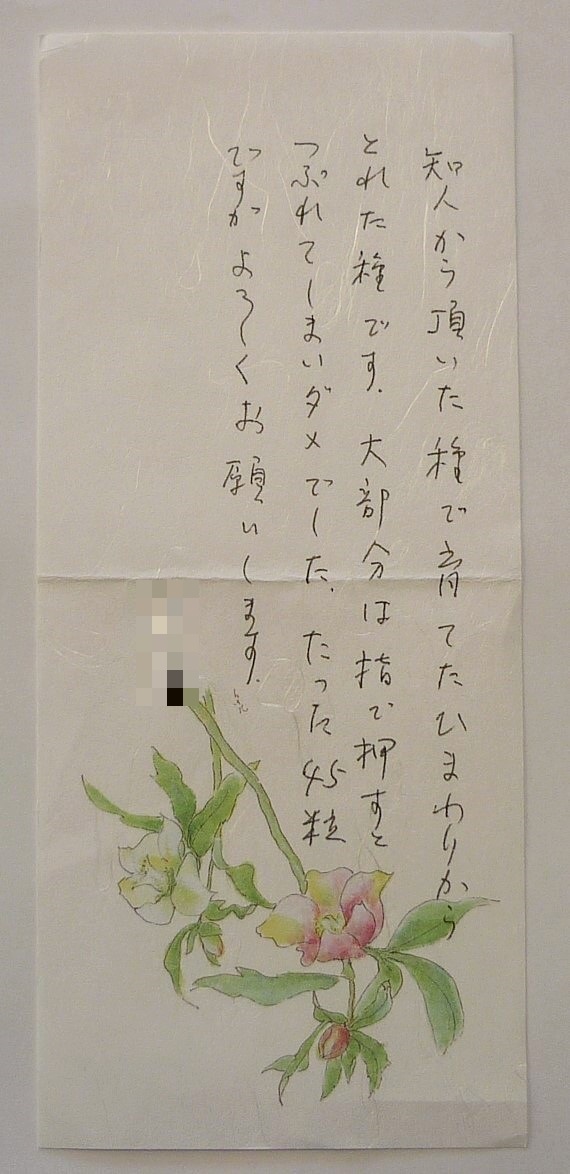 知人から頂いた種で育てたひまわりから
とれた種です。大部分は指で押すと
つぶれてしまいダメでした。たった45粒
ですがよろしくお願いします。